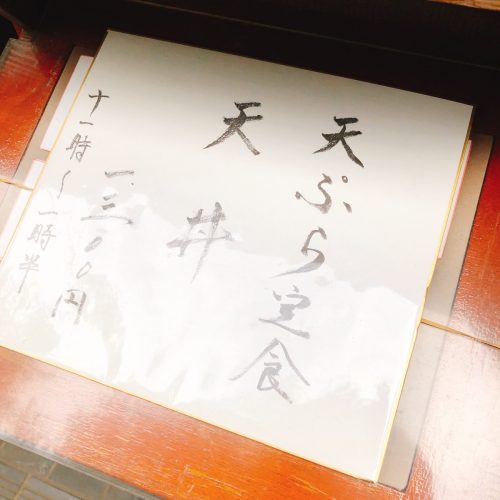 天ぷら定食
天丼
一三〇〇円
十一時〜一時半